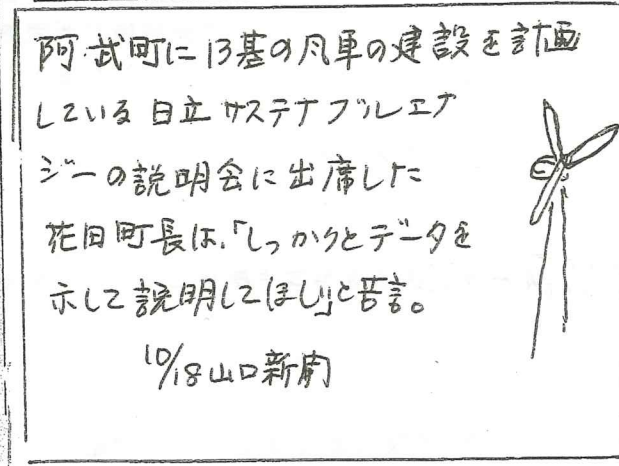 阿武町に13基の風車の建設を計画
している日立サステナブルエナ
ジーの説明会に出席した
花田町長は、「しっかりとデータを
示して説明してほしい」と苦言。
10/18山口新聞